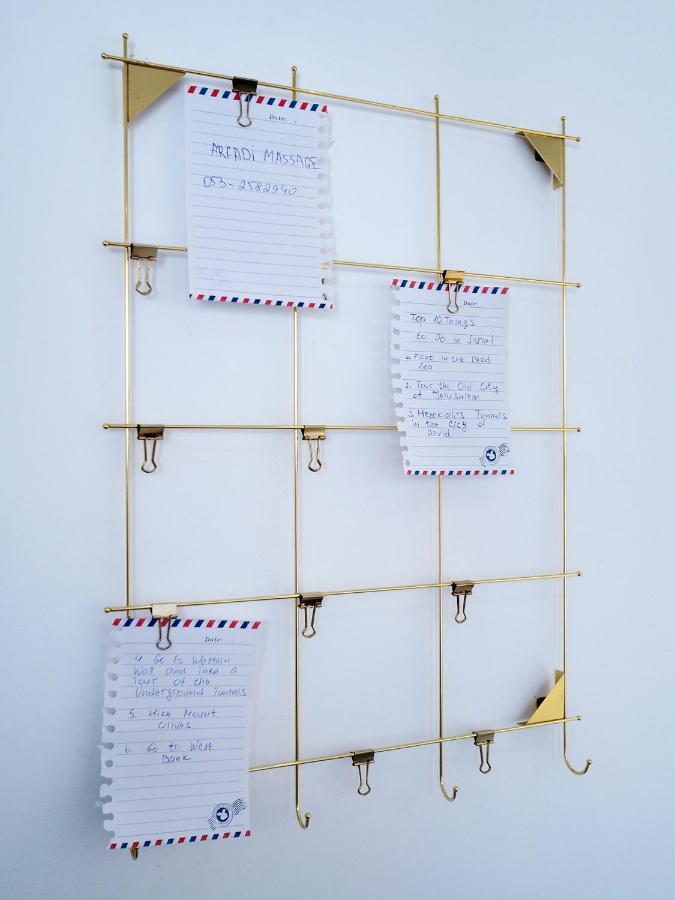 Date:
ARCADi MASSAGE
053-2582940
Date:
Top 10 Things
to Do in Israel
1. Float in the Dead
Sea
2. Tour the Old City
of Jerusalem
3. Hezekiah's Tunnels
in the City of
David
Date:
4. Go to Western
Wall and Take a
Tour of the
Underground Tunnels
5. Hike Mount
Olives
6. Go to West
Bank